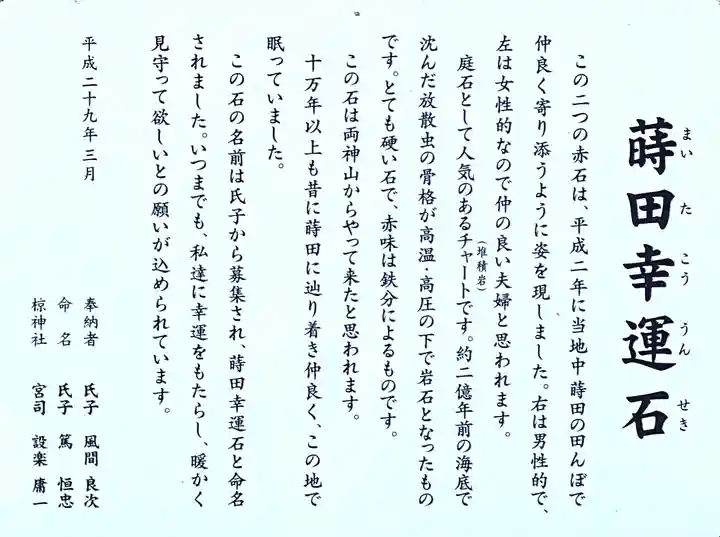 蒔田幸運石
まいたこううんせき
この二つの赤石は、平成二年に当地中蒔田の田んぼで
仲良く寄り添うように姿を現しました。右は男性的で、
左は女性的なので仲の良い夫婦と思われます。
庭石として人気のあるチャートです。約二億年前の海底で
(堆積岩)
沈んだ放散虫の骨格が高温・高圧の下で岩石となったもの
です。とても硬い石で、赤味は鉄分によるものです。
この石は両神山からやって来たと思われます。
十万年以上も昔に蒔田に辿り着き仲良く、この地で
眠っていました。
この石の名前は氏子から募集され、蒔田幸運石と命名
されました。いつまでも、私達に幸運をもたらし、暖かく
見守って欲しいとの願いが込められています。
平成二十九年三月
奉納者 氏子 風間 良次
命名 氏子 篤 恒忠
椋神社 宮司 設楽 庸一